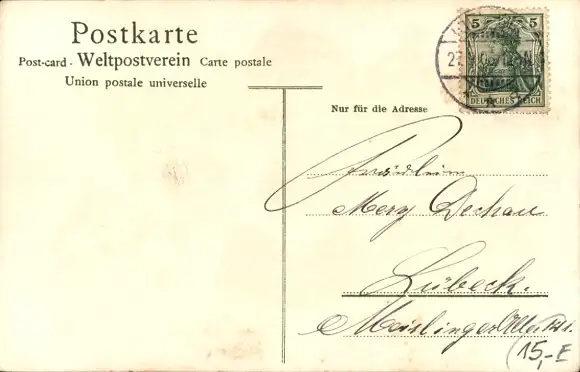 Postkarte
Post-card - Weltpostverein Carte postale
Union postale universelle
Nur für die Adresse
5 5
DEUTSCHES REICH
Fräulein
Mary Dechau
Lübeck.
Moislinger Allee
15,-E